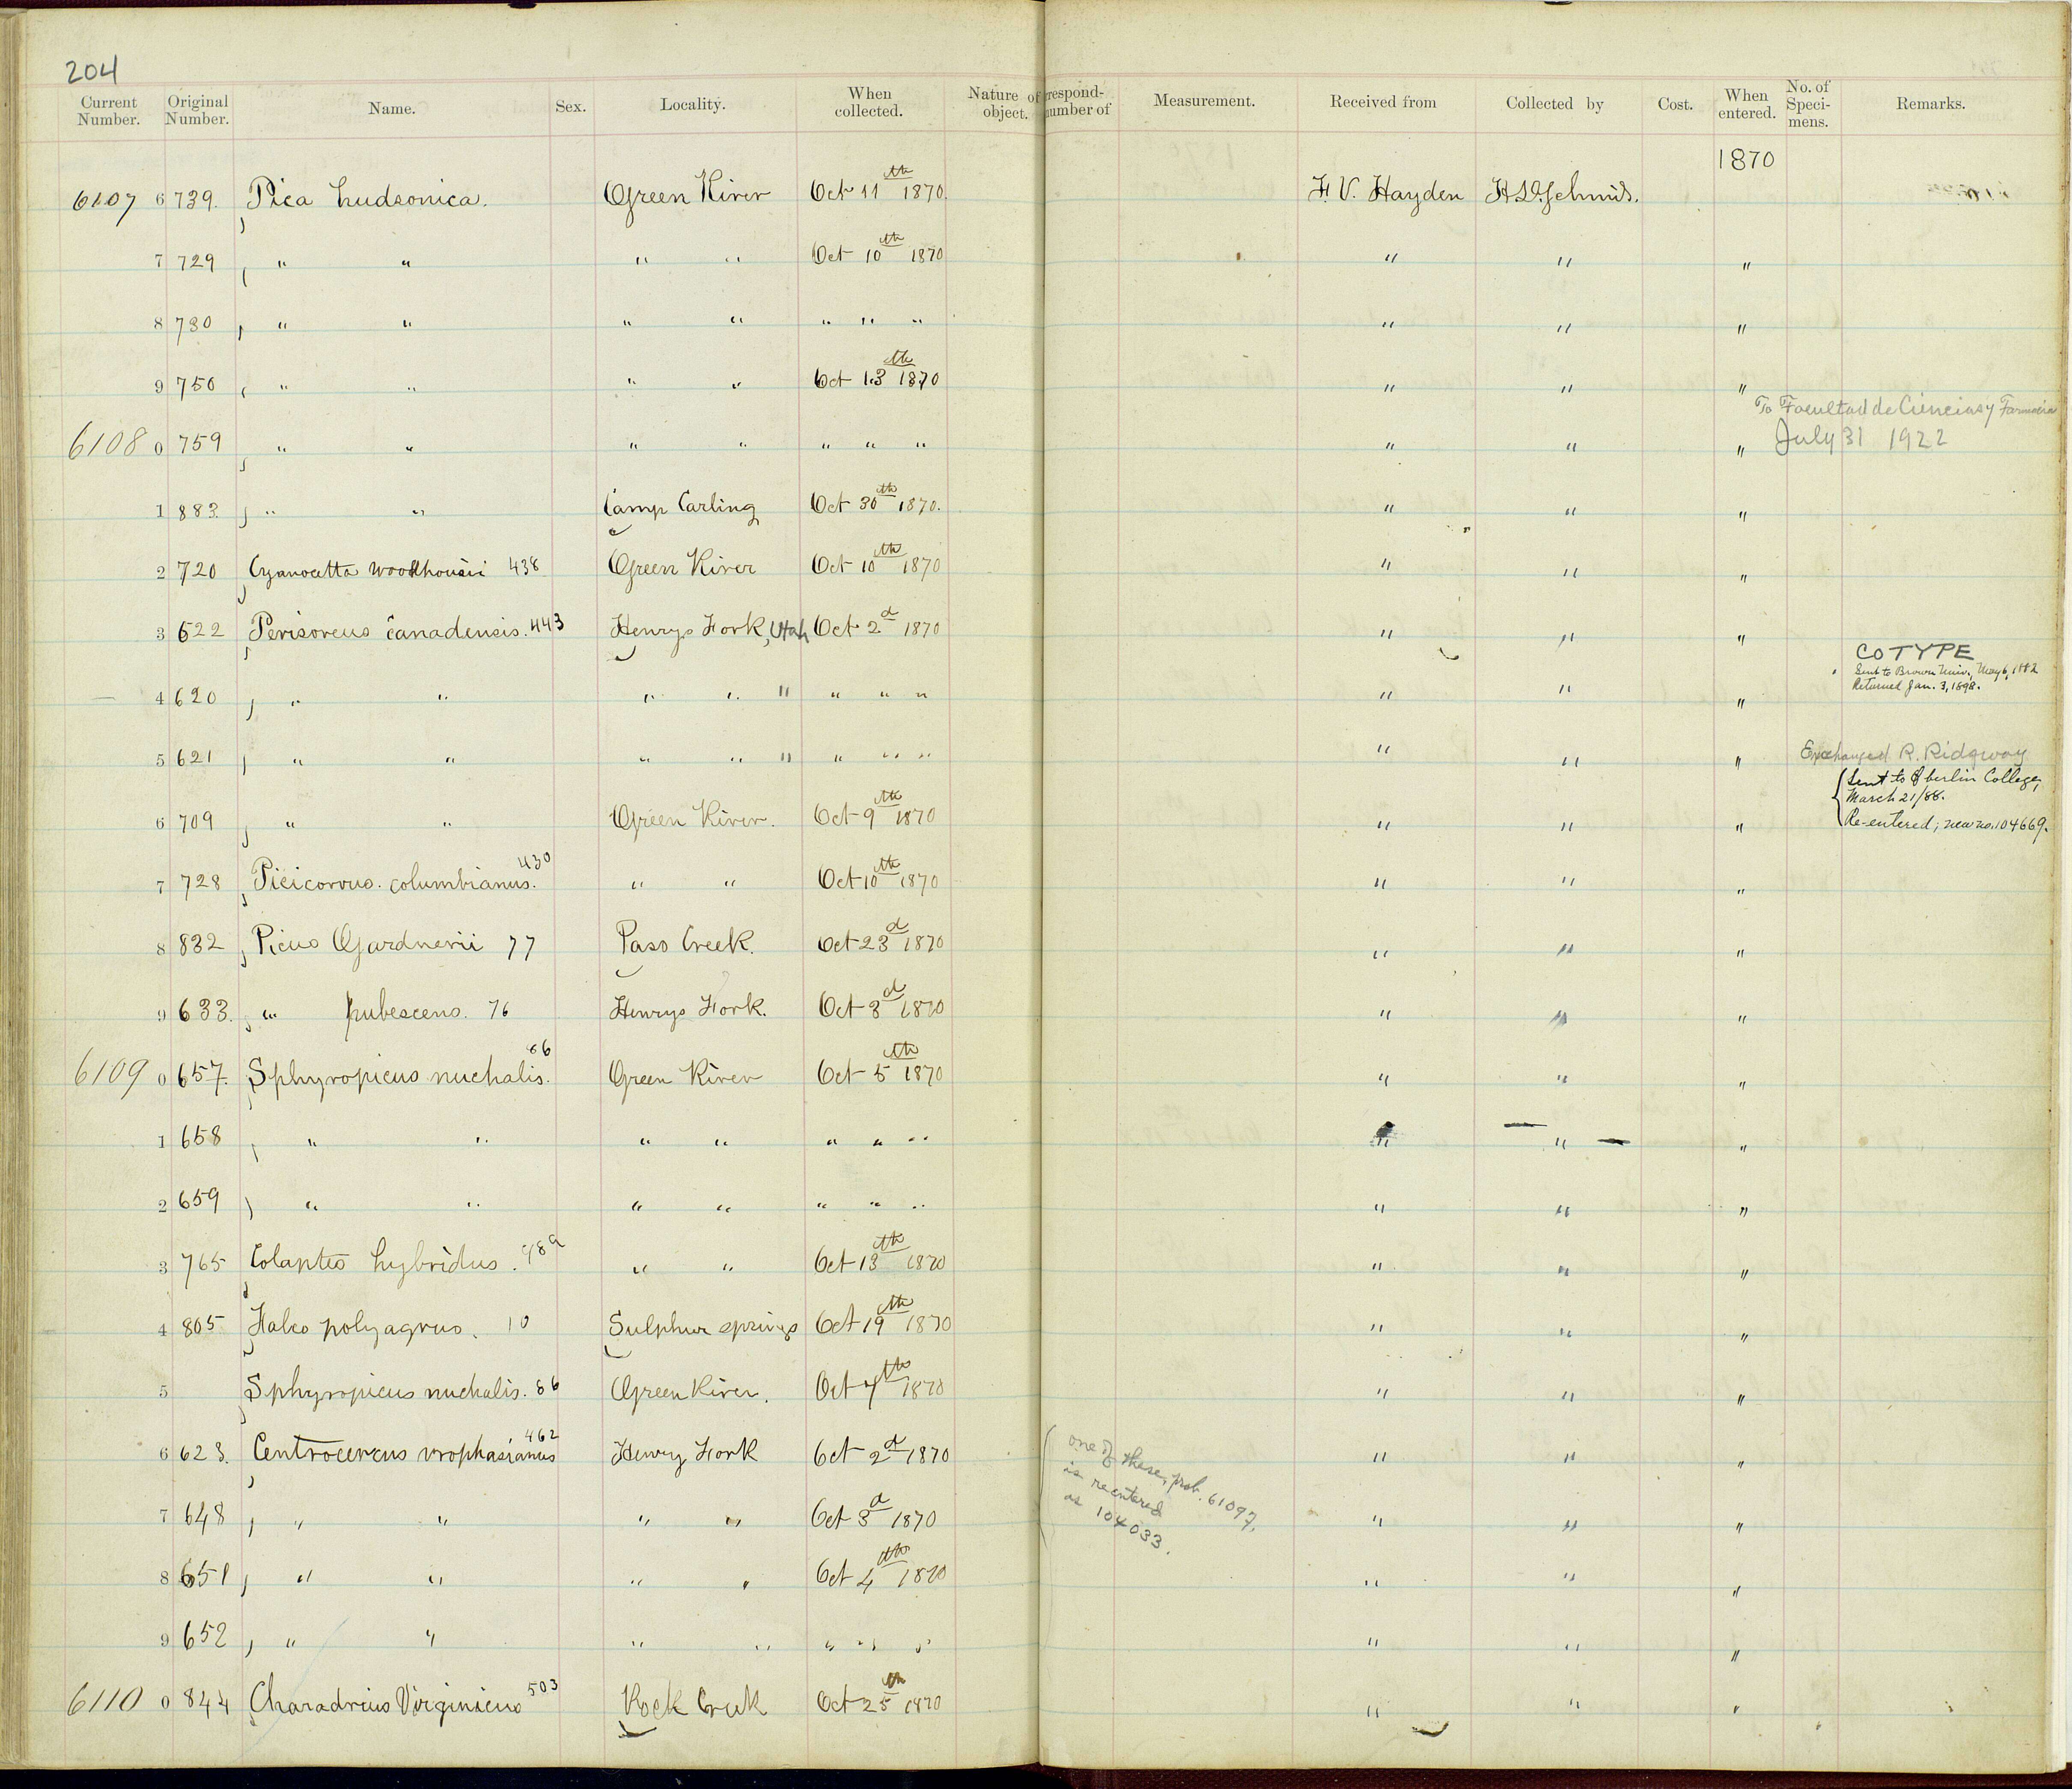 204
Current Number. Original Number. Name. Sex. Locality. When collected. Nature of object. respond- number of Measurement. Received from Collected by Cost. When entered. No. of Speci- mens. Remarks.
1870
6107 6 739. Pica hudsonica. Green River Oct 11th 1870. F. V. Hayden H.D. Schmidt.
7 729 " " " " Oct 10th 1870 " " "
8 730 " " " " " " " " " "
9 750 " " " " Oct 13th 1870 " " "
To Facultad de Ciencias y Farmacia
6108 0 759 " " " " " " " " " " July 31 1922
1 883. " " Camp Carling Oct 30th 1870. " " "
2 720 Cyanocitta woodhousii 438 Green River Oct 10th 1870 " " "
3 622 Perisoreus canadensis. 443 Henrys Fork, Utah Oct 2d 1870 " " "
COTYPE
Sent to Brown Univ., May 6, 1882
Returned Jan. 3, 1898.
4 620 " " " " " " " " " " "
5 621 " " " " " " " " " " " Exchanged R. Ridgway
{Sent to Oberlin College,
March 21/88.
Re-entered; new no. 104669.
6 709 " " Green River. Oct 9th 1870 " " "
7 728 Picicorvus. columbianus. 430 " " Oct 10th 1870 " " "
8 832 Picus Gardnerii 77 Pass Creek. Oct 23d 1870 " " "
9 633. " pubescens. 76 Henrys Fork. Oct 3d 1870 " " "
6109 0 657. Sphyropicus nuchalis. 86 Green River Oct 5th 1870 " " "
1 658 " " " " " " " " " "
2 659 " " " " " " " " " "
3 765 Colaptes hybridus. 98a " " Oct 13th 1870 " " "
4 805 Falco polyagrus. 10 Sulphur springs Oct 19th 1870 " " "
5 Sphyropicus nuchalis. 86 Green River. Oct 7th 1870 " " "
6 623. Centrocercus urophasianus 462 Henry Fork Oct 2d 1870 " " "
one of these, prob. 61097,
is reentered
as 104033.
7 648 " " " " Oct 3d 1870 " " "
8 651 " " " " Oct 4th 1870 " " "
9 652 " " " " " " " " " "
6110 0 844 Charadrius Virginicus 503 Rock Creek Oct 25th 1870 " " "